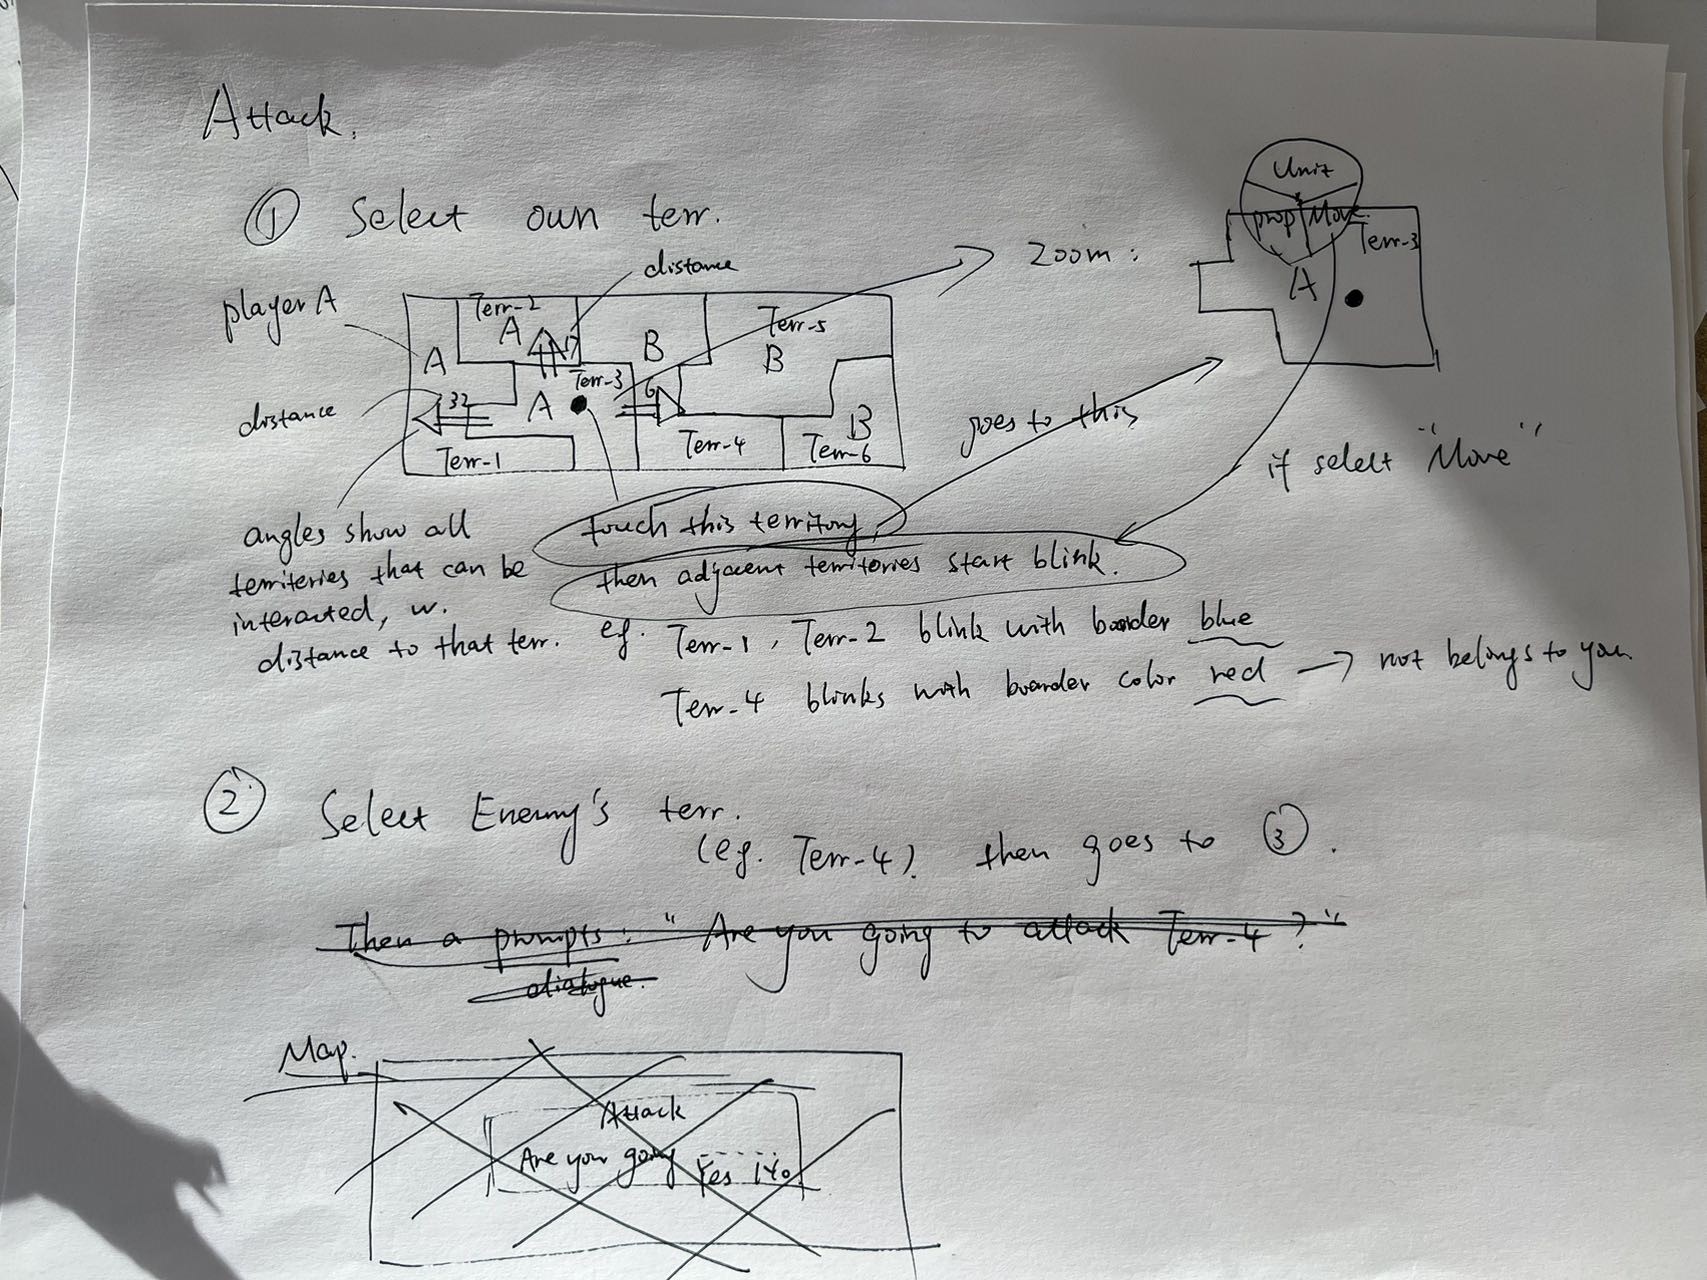 Attack.
① Select own terr.
player A
distance
Zoom:
Unit
prop Move
Terr-3
A
Terr-2
A
17
A
B
Terr-5
B
Terr-3
A
6
32
distance
Terr-1
Terr-4
B
Terr-6
goes to this
if select "Move"
angles show all
territeries that can be
interacted, w.
distance to that terr.
touch this territory,
then adjacent territories start blink.
eg. Terr-1, Terr-2 blink with boarder blue
Terr-4 blinks with boarder color red → not belongs to you
② Select Enemy's terr.
(eg. Terr-4). then goes to ③.
Then a prompts: "Are you going to attack Terr-4?"
dialogue.
Map.
Attack
Are your going
Yes No